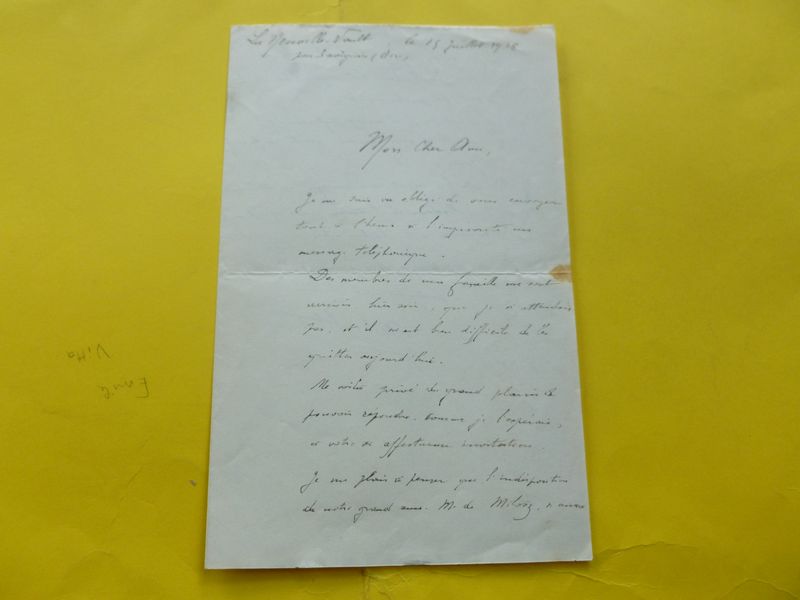 La Neuville-Vault le 15 juillet 19
par Savignies (Oise)
Mon Cher Ami,
Je me suis vu obligé de vous envoyer
tout à l'heure à l'improviste un
message téléphonique.
Des membres de ma famille me sont
arrivés hier soir, que je n'attendais
pas, et il m'est bien difficile de les
quitter aujourd'hui.
Me voilà privé du grand plaisir de
pouvoir répondre, comme je l'espérais,
à votre si affectueuse invitation.
Je me plais à penser que l'indisposition
de notre grand ami M. de Milosz, n'aura
Emile
Vitta